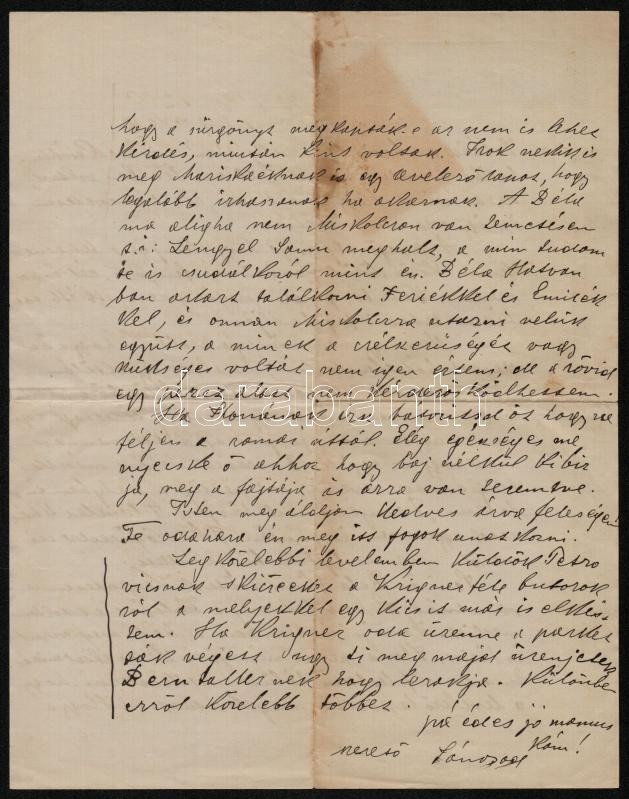 hogy a sürgönyt megkapták e az nem is lehet
kérdés, miután kint voltak. Irok nekik is
meg Mariskáéknak is egy levelező lapot, hogy
legalább irhassanak ha akarnak. A Béla
ma aligha nem Miskolcon van temetésen
t.i: Lengyel Samu meghalt, a min tudom
te is csudálkozol mint én. Béla Hatvan
ban akart találkozni Feriékkel és Emiék
kel, és onnan Miskolcra utazni velük
együtt, a minek a célszerűségét vagy
szükséges voltát nem igen értem; de a rövid
egy percz alatt nem kérdezősködhettem.
Ha Flórának irsz batoritsd őt hogy ne
féljen a romai úttól. Elég egészséges me
nyecske ő ahhoz hogy baj nélkül kibir
ja, meg a fajtája is arra van teremtve.
Isten meg áldjon kedves árva feleségem!
Te oda haza én meg itt fogok unatkozni.
Legközelebbi levelemben küldök Petro
vicsnak skiczeket a Krigner féle butorok
ról a melyekkel egy kicsit más is elkés
zem. Ha Krigner oda üzenne a parket
ták végett ugy ti meg majd üzenjetek
Berntallernek hogy lerakja. Különben
erről közelebb többet.
pá édes jó mamus
kám!
szerető
darabanth